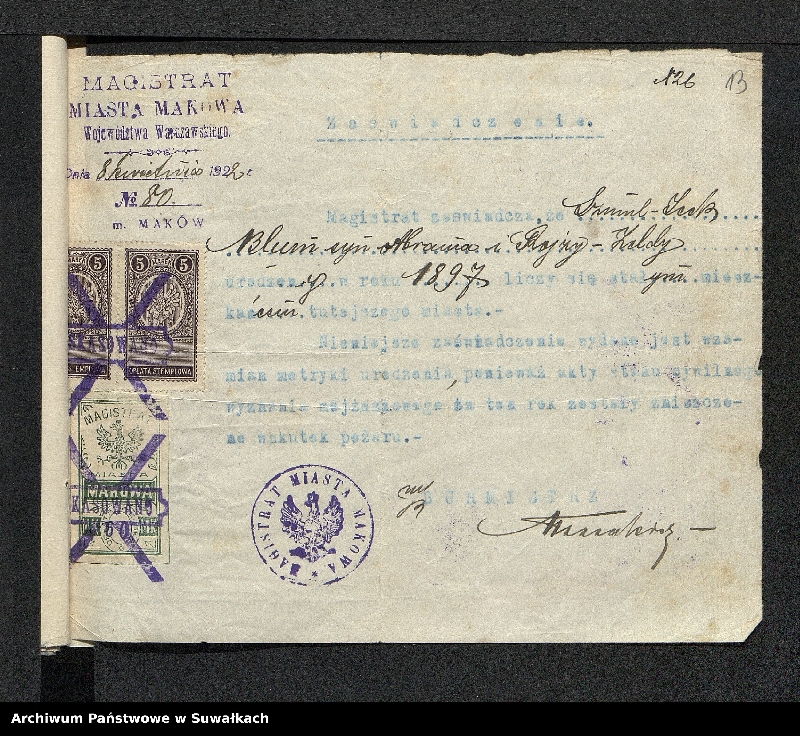 №26 13
MAGISTRAT
MIASTA MAKOWA
Województwa Warszawskiego.
Dnia 8 kwietnia 1922 r.
№ 80.
m. MAKÓW
Zaświadczenie.
Magistrat zaświadcza, że Szmul-Icek
Blum syn Abrama i Rojzy-Zeldy
urodzony w roku 1897 liczy się stałym miesz-
kańcem tutejszego miasta.-
Niniejsze zaświadczenie wydane jest wza-
mian metryki urodzenia ponieważ akty stanu cywilnego
wyznania mojżeszowego za ten rok zostały zniszczo-
ne wskutek pożaru.-
BURMISTRZ
5 5 5
OPŁATA STEMPLOWA
SKASOWANO
MAGISTRAT
MIASTA
MAKOWA
SKASOWANO
MK 50 MK
MAGISTRAT MIASTA MAKOWA
Archiwum Państwowe w Suwałkach